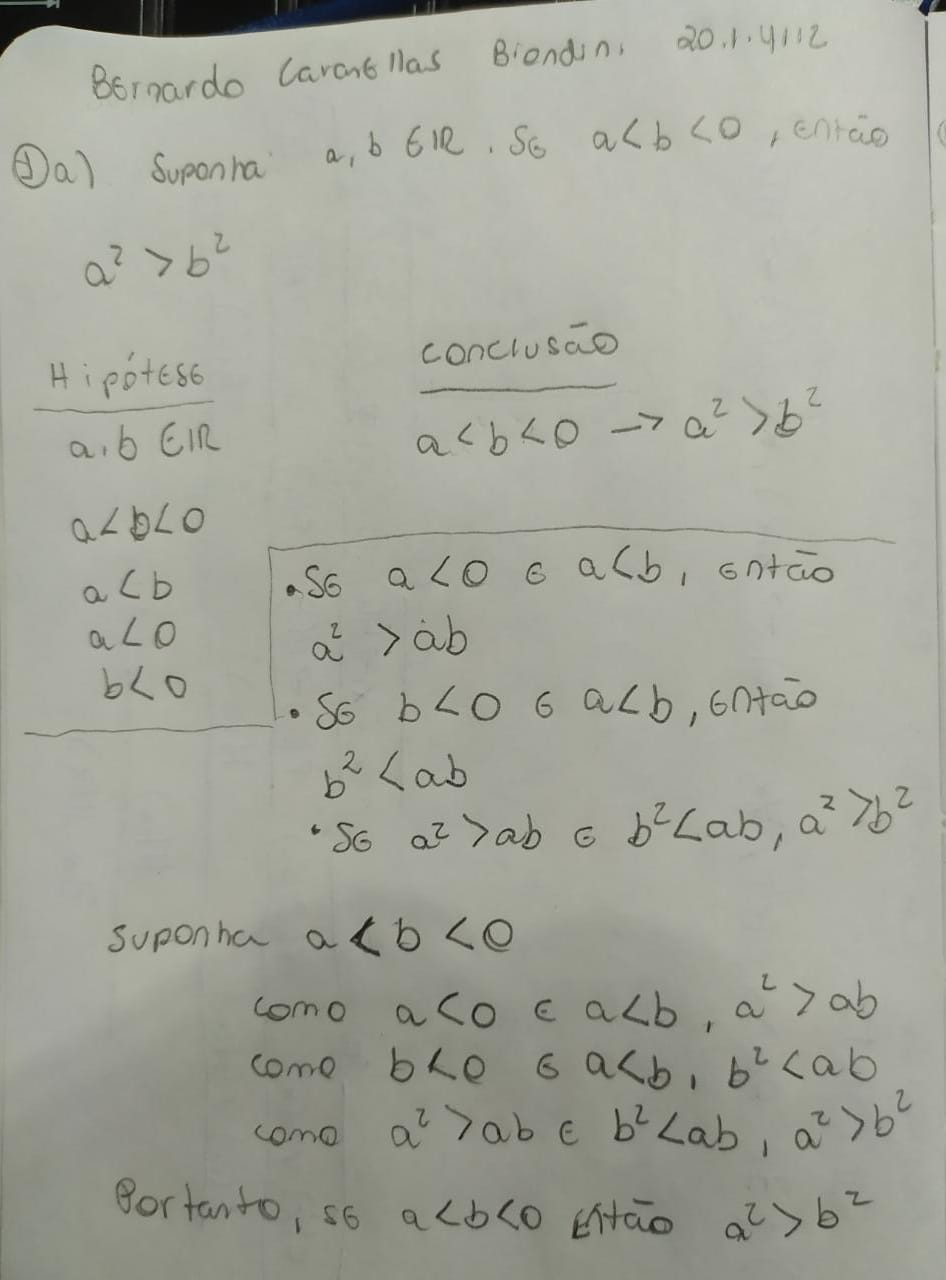 Bernardo Caravellas Biondini 20.1.4112
① a) Suponha a, b ∈ IR. Se a < b < 0, então
a² > b²
Hipótese
a, b ∈ IR
a < b < 0
a < b
a < 0
b < 0
conclusão
a < b < 0 → a² > b²
• Se a < 0 e a < b, então
a² > ab
• Se b < 0 e a < b, então
b² < ab
• Se a² > ab e b² < ab, a² > b²
Suponha a < b < 0
como a < 0 e a < b, a² > ab
como b < 0 e a < b, b² < ab
como a² > ab e b² < ab, a² > b²
Portanto, se a < b < 0 então a² > b²